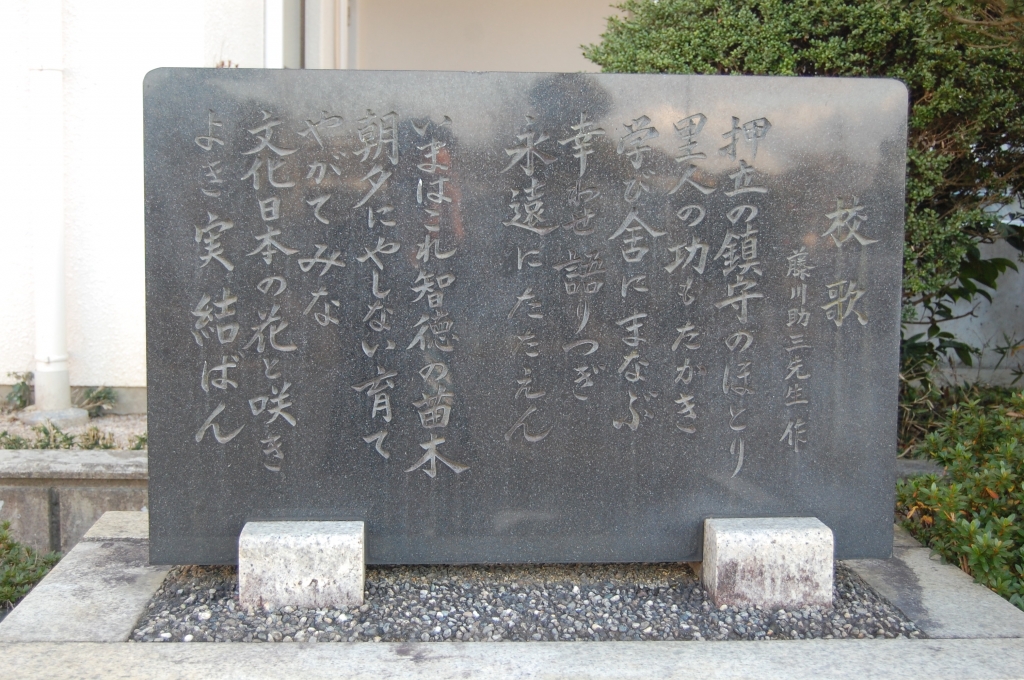 校歌
藤川助三先生作
押立の鎮守のほとり
里人の功もたかき
学び舎にまなぶ
幸わせ語りつぎ
永遠にたたえん
いまはこれ智徳の苗木
朝夕にやしない育て
やがてみな
文化日本の花と咲き
よき実結ばん